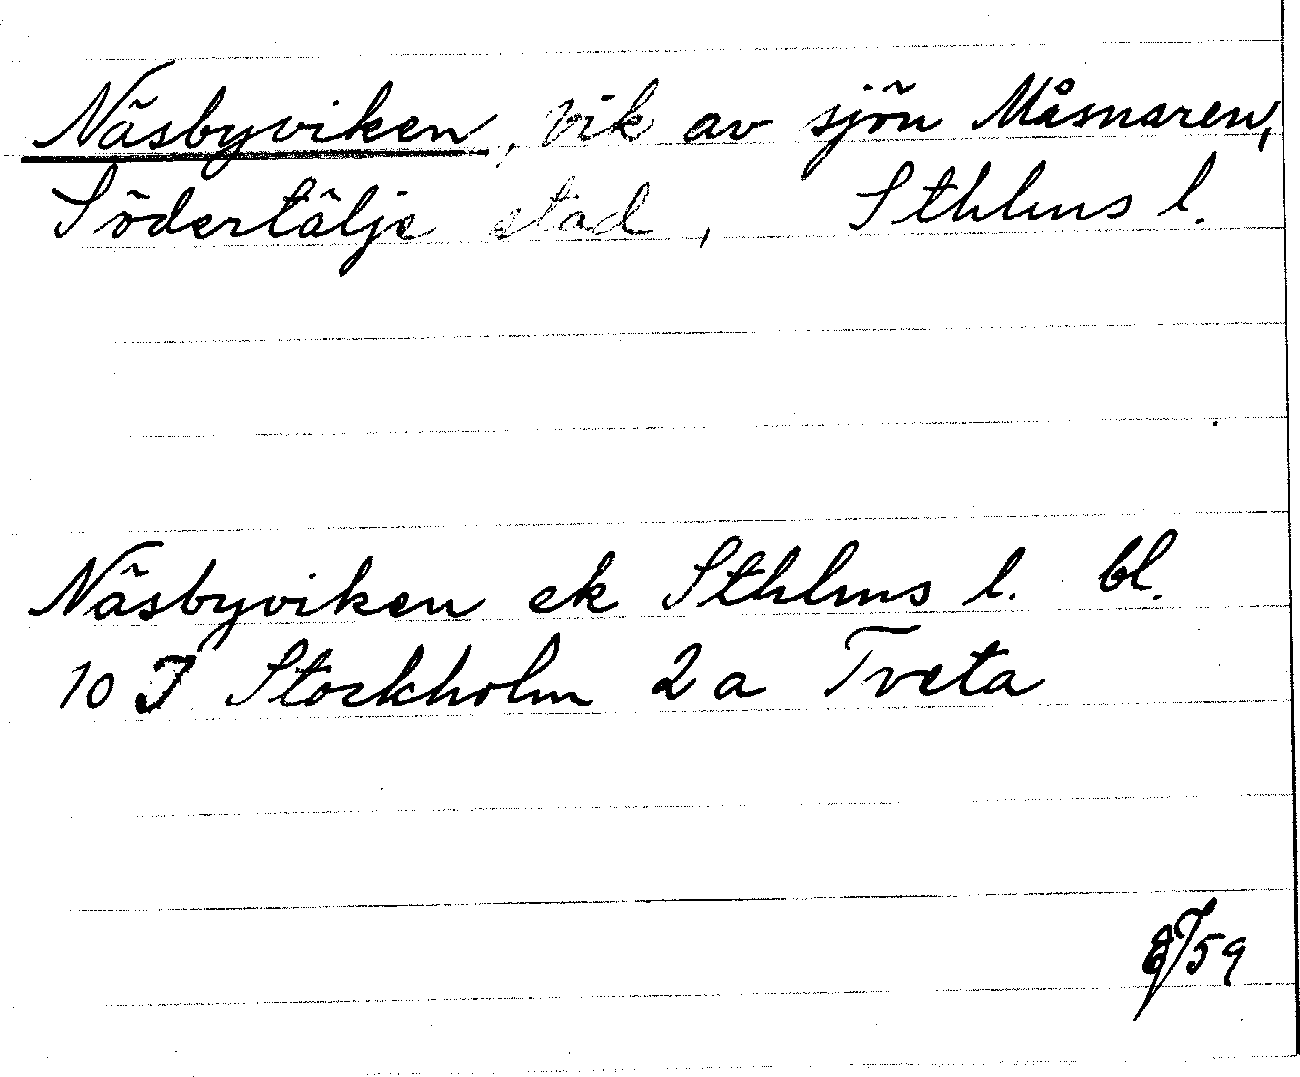 Näsbyviken, vik av sjön Måsnaren,
Södertälje stad, Sthlms l.
Näsbyviken ek Sthlms l. bl.
10 I Stockholm 2 a Tveta
59